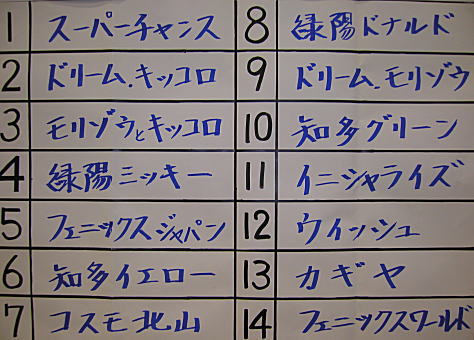 1 スーパーチャンス
2 ドリーム.キッコロ
3 モリゾウとキッコロ
4 緑陽ミッキー
5 フェニックスジャパン
6 知多イエロー
7 コスモ北山
8 緑陽ドナルド
9 ドリーム.モリゾウ
10 知多グリーン
11 イニシャライズ
12 ウイッシュ
13 カギヤ
14 フェニックスワールド